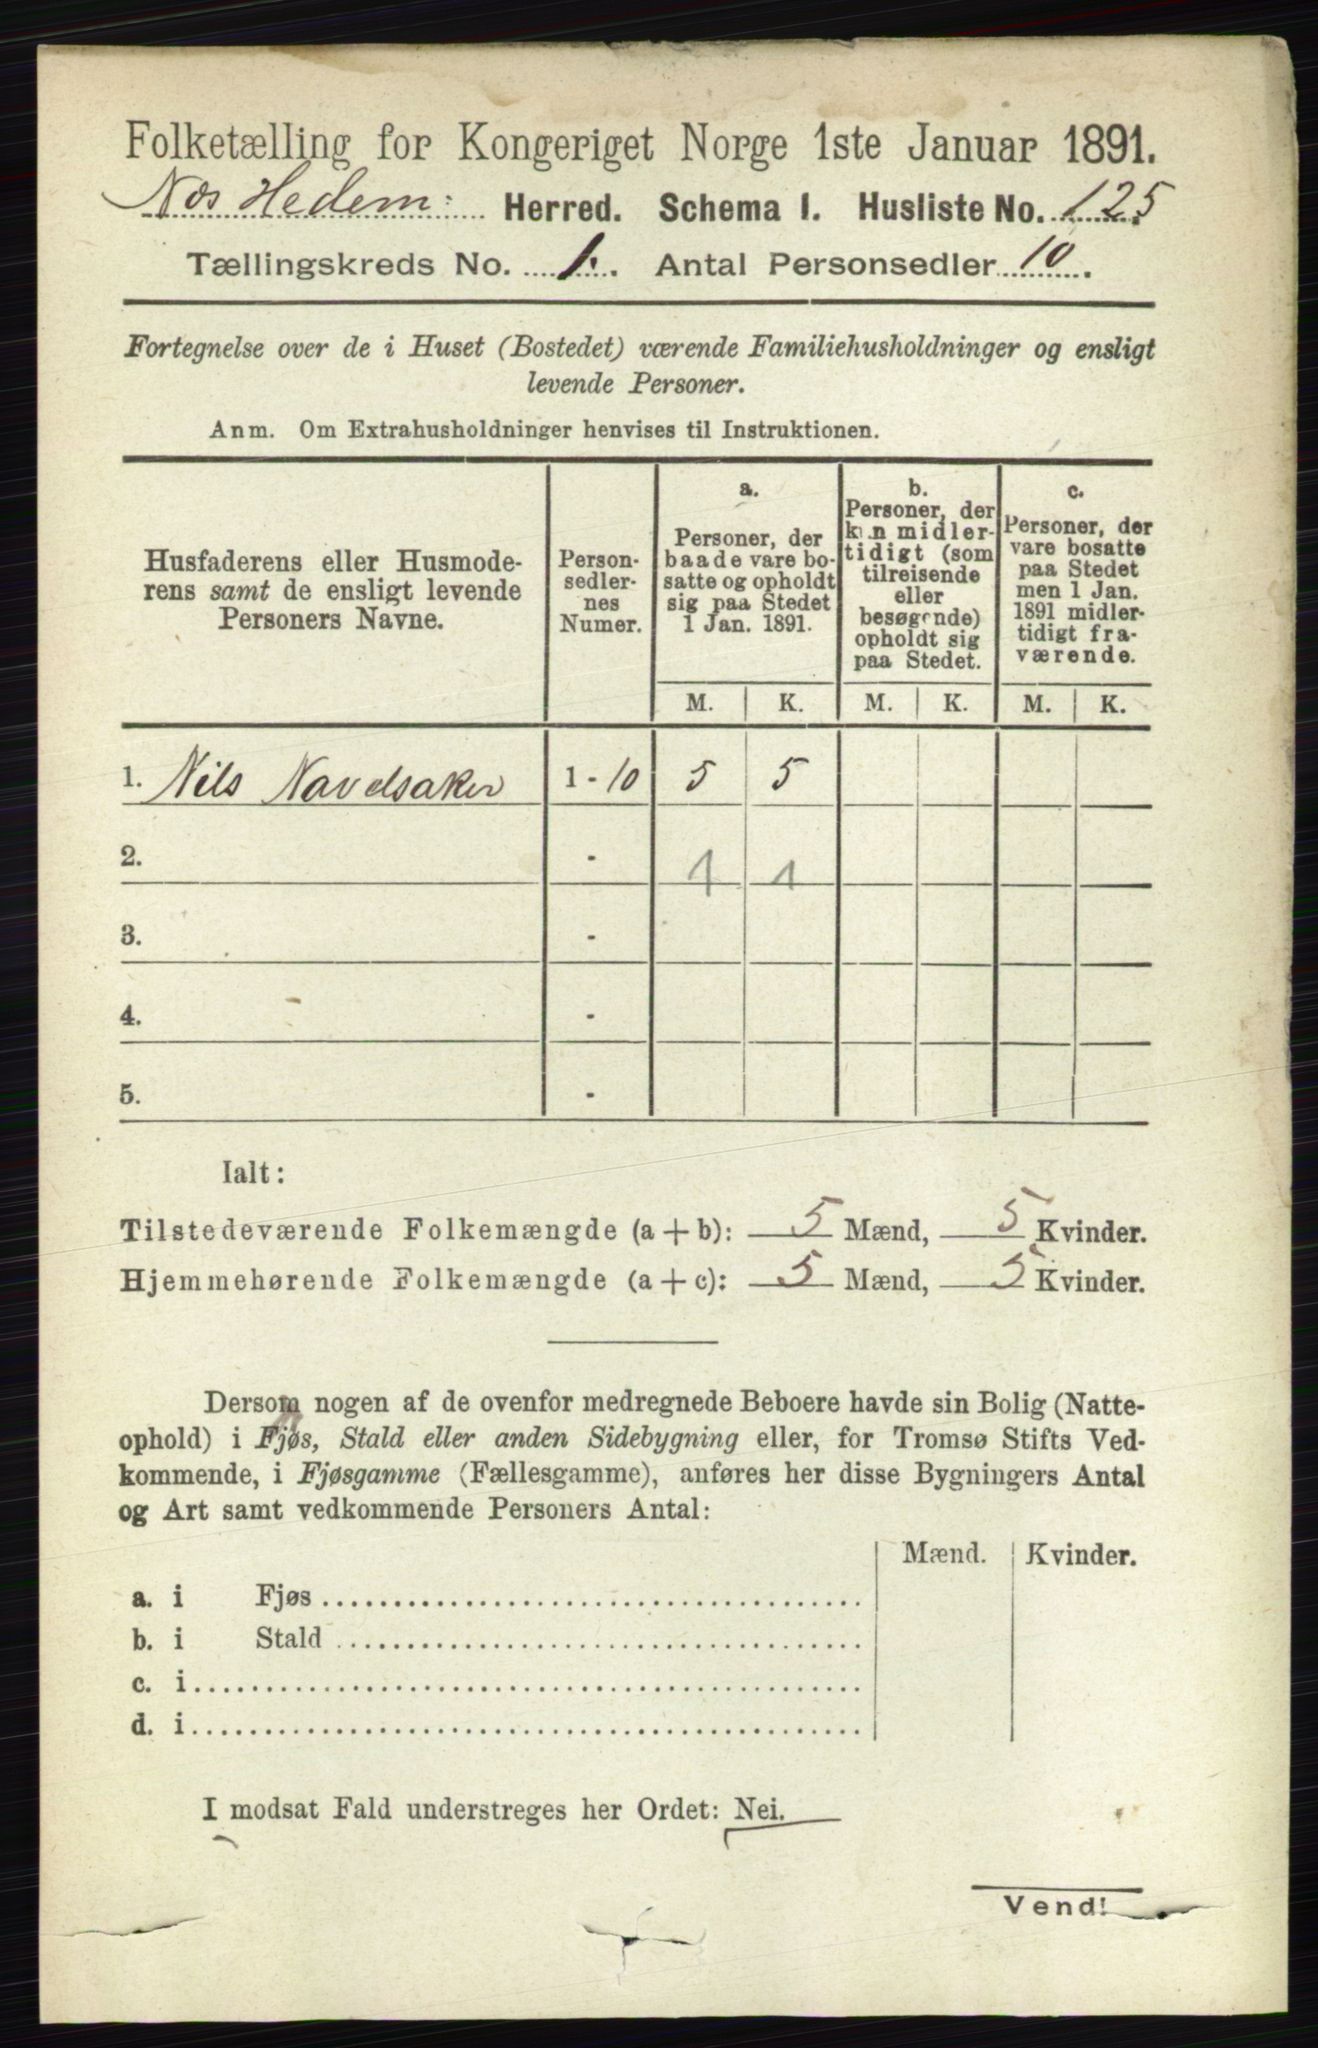 Folketælling for Kongeriget Norge 1ste Januar 1891.
Næs Hedem: Herred. Schema I. Husliste No. 125
Tællingskreds No. 1. Antal Personsedler 10.
Fortegnelse over de i Huset (Bostedet) værende Familiehusholdninger og ensligt
levende Personer.
Anm. Om Extrahusholdninger henvises til Instruktionen.
Husfaderens eller Husmode-
rens samt de ensligt levende
Personers Navne.
Person-
sedler-
nes
Numer.
a.
Personer, der
baade vare bo-
satte og opholdt
sig paa Stedet
1 Jan. 1891.
b.
Personer, der
kun midler-
tidigt (som
tilreisende
eller
besøgende)
opholdt sig
paa Stedet.
c.
Personer, der
vare bosatte
paa Stedet
men 1 Jan.
1891 midler-
tidigt fra-
værende.
M. K. M. K. M. K.
1. Nils Navelsaker 1 - 10 5 5
2. - 4 1
3. -
4. -
5. -
Ialt:
Tilstedeværende Folkemængde (a + b): 5 Mænd, 5 Kvinder.
Hjemmehørende Folkemængde (a + c): 5 Mænd, 5 Kvinder.
Dersom nogen af de ovenfor medregnede Beboere havde sin Bolig (Natte-
ophold) i Fjøs, Stald eller anden Sidebygning eller, for Tromsø Stifts Ved-
kommende, i Fjøsgamme (Fællesgamme), anføres her disse Bygningers Antal
og Art samt vedkommende Personers Antal:
Mænd. Kvinder.
a. i Fjøs
b. i Stald
c. i
d. i
I modsat Fald understreges her Ordet: Nei.
Vend!